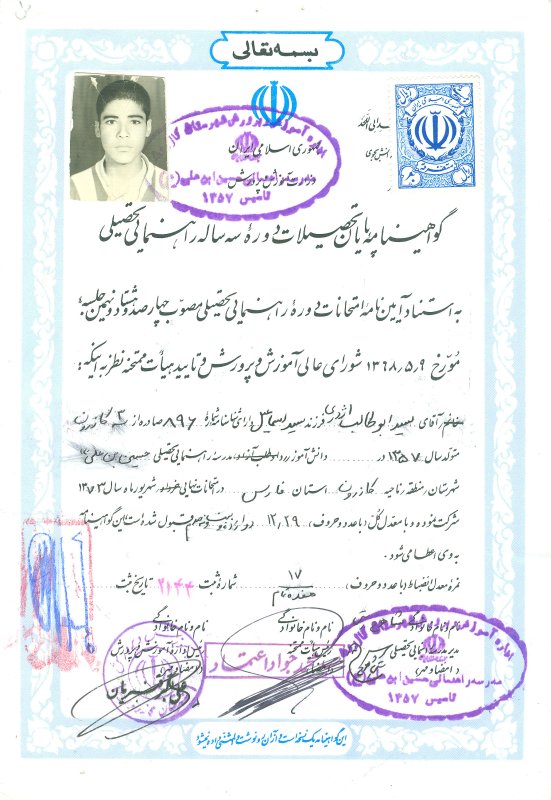 بسمه تعالی
جمهوری اسلامی ایران
وزارت آموزش و پرورش
اداره آموزش و پرورش شهرستان کازرون
مدرسه راهنمائی حسین ابن علی (ع)
تاسیس ۱۳۵۷
گواهینامه پایان تحصیلات دورهٔ سه ساله راهنمائی تحصیلی
به استناد آیین نامهٔ امتحانات دورهٔ راهنمائی تحصیلی مصوب چهارصد و هشتاد و نهمین جلسهٔ
مورّخ ۱۳۶۸٫۵٫۹ شورای عالی آموزش و پرورش و تایید هیأت ممتحنه نظر به اینکه:
خانم آقای سید ابوطالب فرزند سید اسماعیل دارای شناسنامه شمارهٔ ۸۹۶ صادره از ۳ کازرون
متولد سال ۱۳۵۷ در دانش آموز مدرسه راهنمائی تحصیلی حسین بن علی
شهرستان/منطقه/ناحیه کازرون استان فارس در امتحانات نهایی خرداد/شهریور ماه سال ۱۳۷۳
شرکت نموده و با معدل کل (با عدد و حروف) ۱۲٫۲۹ دوازده و بیست و نه صدم قبول شده است این گواهینامه
به وی اعطا می شود.
نمره معدل انضباط (با عدد و حروف) ۱۷ هفده تمام شمارهٔ ثبت ۲۱۴۴ تاریخ ثبت
نام و نام خانوادگی
نام و نام خانوادگی
مدیر مدرسه راهنمائی تحصیلی
(امضاء و مهر)
رئیس اداره آموزش و پرورش
جواد اعتماد
اداره آموزش و پرورش شهرستان کازرون
مدرسه راهنمائی حسین ابن علی (ع)
تاسیس ۱۳۵۷
این گواهینامه یک نسخه است و از آن رونوشت و المثنی داده نمیشود